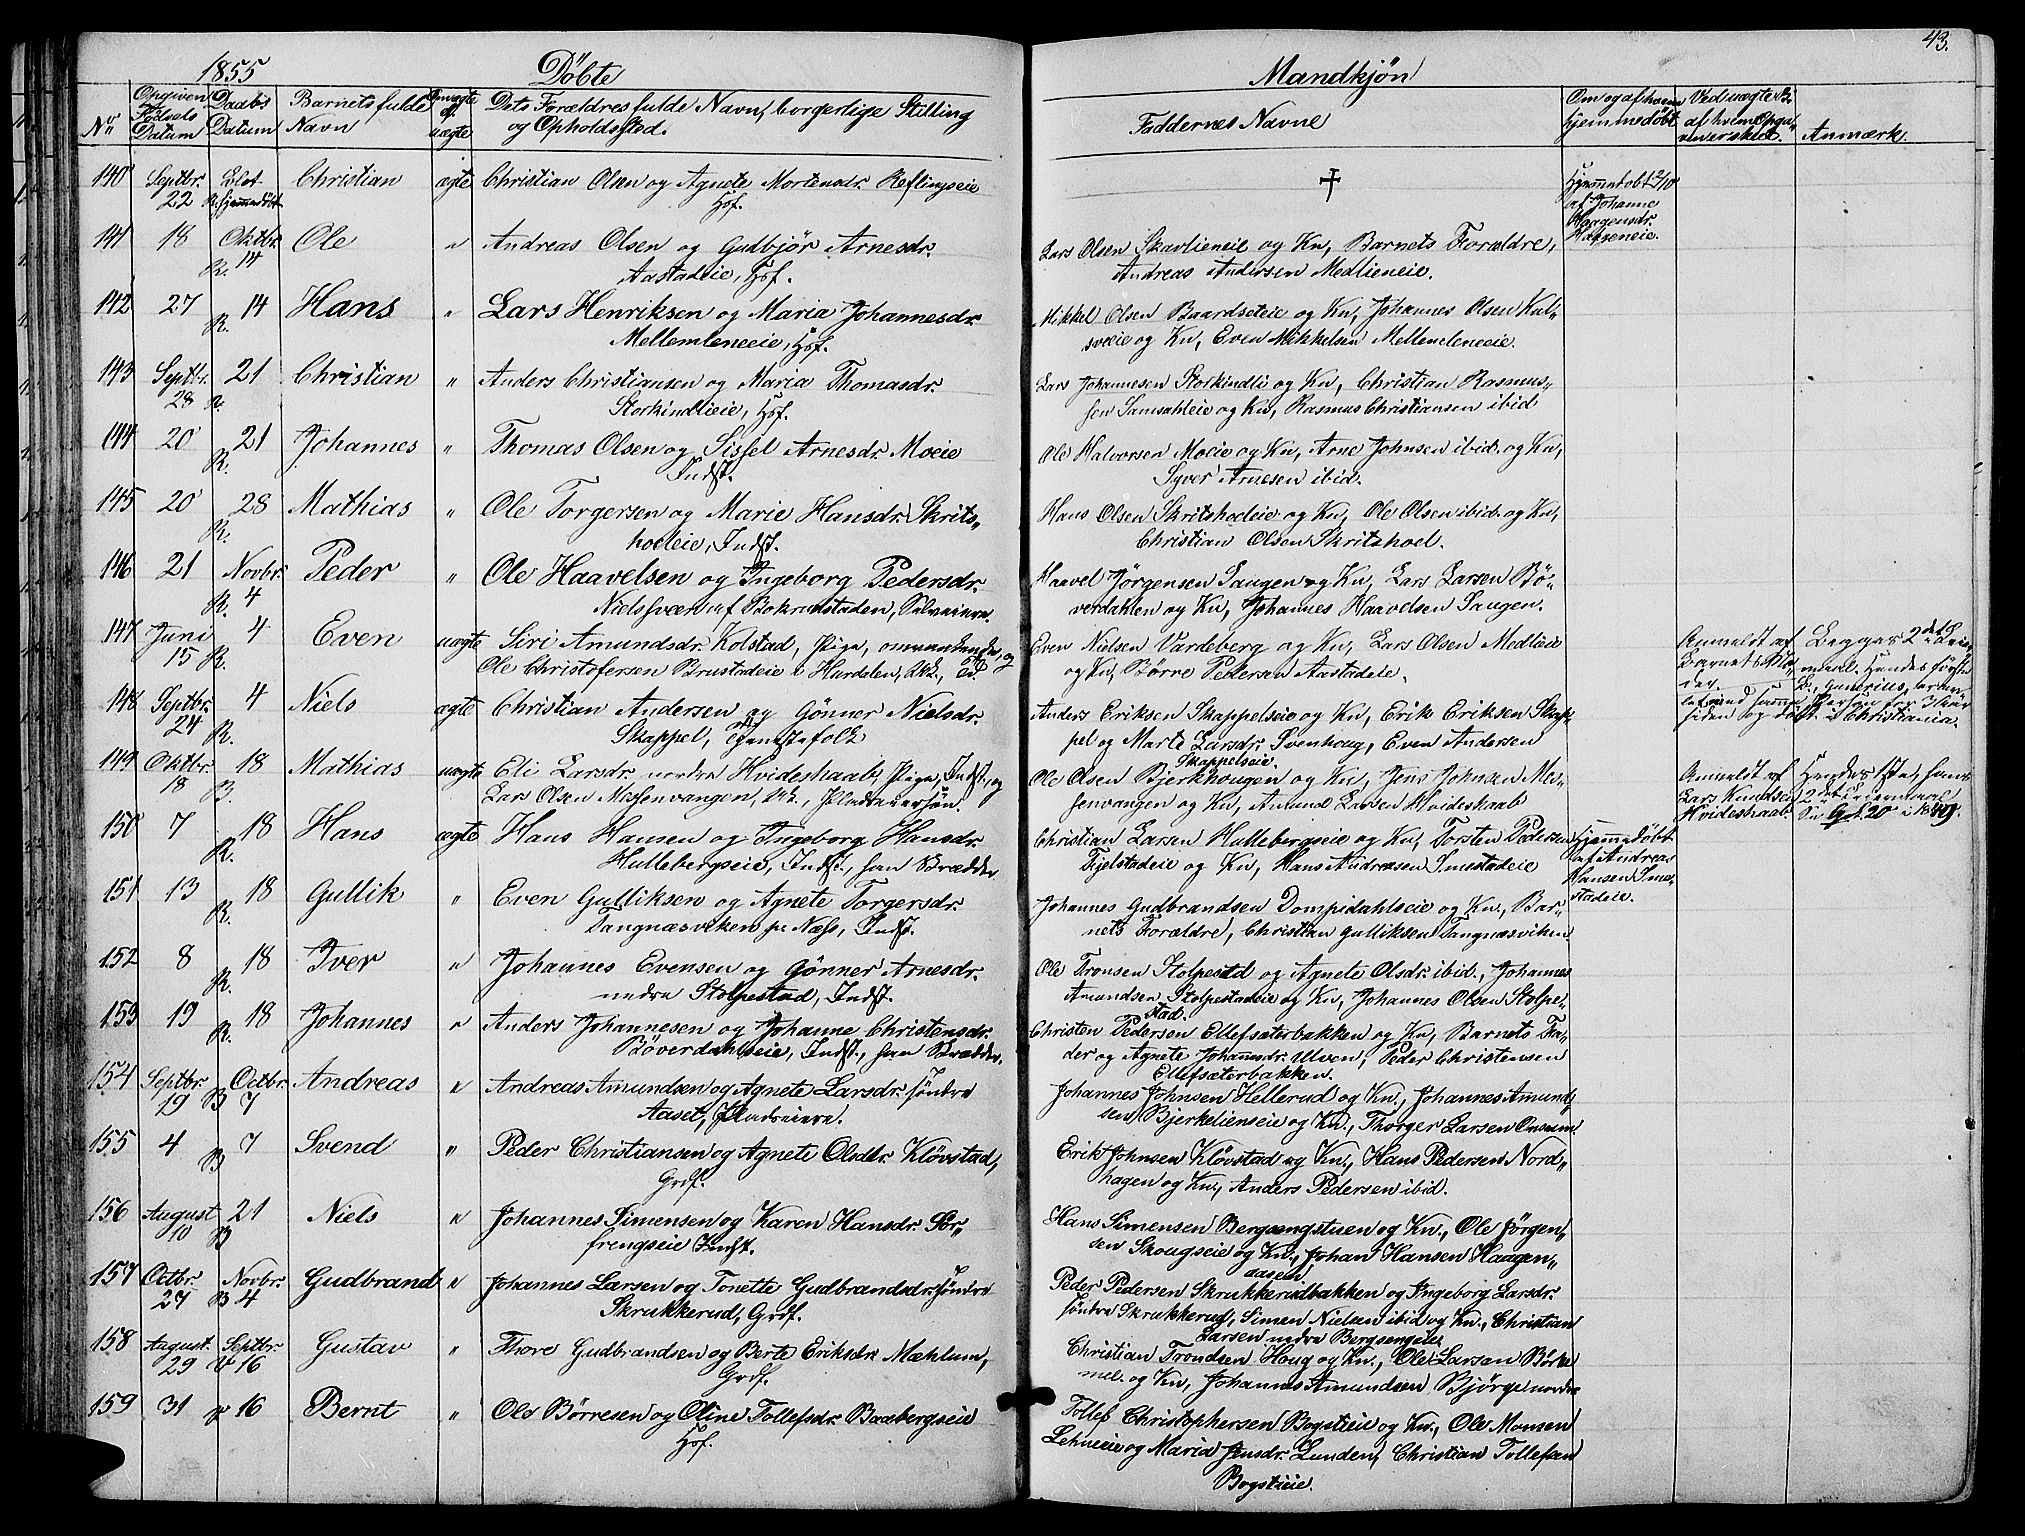 43.
1855 Döbte Mandkjön
No Opgiven Födsels Datum Daabs Datum Barnets fulde Navn Om ægte el. uægte Dets Forældres fulde Navn, borgerlige Stilling og Opholdssted. Faddernes Navne Om og af hvem hjemmedöbt Ved uægte B: af hvem Opgaven er skeet. Anmærk.
140 Septbr. 22 Hjemmedöbt Christian ægte Christian Olsen og Agnete Mortensdr. Reflingseie
Hsf. † Hjemmedöbt 2/10 af Johanne Haagensdr. Haageneie.
141 18 Oktbr. 14 R. Ole " Andreas Olsen og Gudbjör Arnesdr.
Aastadeie, Hsf.
Lars Olsen Skavlieneie og Kn, Barnets Forældre,
Andreas Andersen Medlieneie.
142 27 14 R. Hans " Lars Henriksen og Maria Johannesdr.
Mellemleneeie, Hsf.
Mikkel Olsen Baardseteie og Kn, Johannes Olsen Kal„
sveeie og Kn, Even Mikkelsen Mellemleneeie.
143 Septbr. 28 21 R. Christian " Anders Christiansen og Maria Thomasdr.
Storkindlieie, Hsf.
Lars Johannesen Storkindli og Kn, Christian Rasmus„
sen Samsahleie og Kn, Rasmus Christiansen ibid
144 20 21 R. Johannes " Thomas Olsen og Sissel Arnesdr. Moeie
Indst.
Ole Halvorsen Moeie og Kn, Arne Johnsen ibid. og Kn,
Syver Arnesen ibid.
145 20 28 R. Mathias " Ole Torgersen og Marie Hansdr. Skrits„
hoeleie, Indst.
Hans Olsen Skritshoeleie og Kn, Ole Olsen ibid. og Kn,
Christian Olsen Skritshoel.
146 21 Novbr. 4 R. Peder " Ole Haavelsen og Ingeborg Pedersdr.
Nielssveen af Bokrudstaden, Selveiere.
Haavel Jörgensen Saugen og Kn, Lars Larsen Bö„
verdahlen og Kn, Johannes Haavelsen Saugen.
147 Juni 15 4 R. Even uægte Siri Amundsdr. Kolstad, Pige, og
Ole Christofersen Brustadeie i Hurdalen, Uk.
Even Nielsen Vardeberg og Kn, Lars Olsen Medlieie
og Kn, Börre Pedersen Aastadeie.
Anmeldt af Barnets Moder.
Begges 2det Leiermaal. Hendes förste
B., Gunerius, er avlet ved samme Person for 3 Aar
siden og döbt i Christiania.
148 Septbr. 24 4 R. Niels ægte Christian Andersen og Gönner Nielsdr.
Skappel, Tjenestefolk
Anders Eriksen Skappelseie og Kn, Erik Eriksen Skap„
pel og Marte Larsdr. Svenhoug, Even Andersen
Skappelseie.
149 Oktbr. 18 18 B. Mathias uægte Eli Larsdr. nordre Hvideshaab, Pige, Indst. og
Lars Olsen Messenvangen, Uk., Pladseiersön.
Ole Olsen Bjerkhougen og Kn, Jens Johnsen Mes„
senvangen og Kn, Amund Larsen Hvideshaab
Anmeldt af Lars Knudsen Hvideshaab.
Hendes 1ste, hans 2det Leiermaal
Su. No 20 i 1849.
150 7 18 R. Hans ægte Hans Hansen og Ingeborg Hansdr.
Hullebergseie, Indst., han Brædder
Christian Larsen Hullebergseie og Kn, Torsten Pedersen
Fjelstadeie og Kn, Hans Andreasen Smestadeie
Hjemmedöbt af Andreas Hansen Smestadeie.
151 13 18 R. Gullik " Even Gulliksen og Agnete Torgersdr.
Tangnæsviken pr. Næss, Indst.
Johannes Gudbrandsen Dompidahlseie og Kn., Bar„
nets Forældre, Christian Gulliksen Tangnæsviken.
152 8 18 R. Iver " Johannes Evensen og Gönner Arnesdr.
nedre Stolpestad, Indst.
Ole Tronsen Stolpestad og Agnete Olsdr. ibid., Johannes
Amundsen Stolpestadeie og Kn, Johannes Olsen Stolpe„
stad.
153 19 18 R. Johannes " Anders Johannesen og Johanne Christensdr.
Böverdahlseie, Indst., han Brædder.
Christen Pedersen Ellefsæterbakken og Kn, Barnets Fa„
der og Agnete Johannsdr. Ulven, Peder Christensen
Ellefsæterbakken.
154 Septbr. 19 Octbr. 7 B Andreas " Andreas Amundsen og Agnete Larsdr. söndre
Aaset, Pladseiere.
Johannes Johnsen Hellerud og Kn., Johannes Amund
sen Bjerkelienseie og Kn., Thorger Larsen Onsum.
155 4 7 B Svend " Peder Christiansen og Agnete Olsdtr. Klövstad,
Grdf.
Erik Johnsen Klövstad og Kn., Hans Pedersen Nord„
hagen og Kn., Anders Pedersen ibid.
156 August 10 21 B Niels " Johannes Simensen og Karen Hansdr. Sör„
frengseie Indst.
Hans Simensen Bergsengstuen og Kn., Ole Jörgen„
sen Skougseie og Kn., Johan Hansen Haagen„
aasen.
157 Octbr. 27 Novbr. 4 B Gudbrand " Johannes Larsen og Tonette Gudbrandsdr. söndre
Skrukkerud, Grdf.
Peder Pedersen Skrukkerudbakken og Ingeborg Larsdr.
söndre Skrukkerud, Simen Nielsen ibid og Kn., Christian
Larsen nedre Bergsengeie
158 August. 29 Septbr. 16 Gustav " Thore Gudbrandsen og Berte Eriksdr. Mæhlum,
Grdf.
Christian Trondsen Houg og Kn., Ole Larsen Börke
mel. og Kn, Johannes Amundsen Björge nordre
159 31 16 Bernt " Ole Börresen og Oline Tollefsdr. Baabergseie
Hsf.
Tollef Christophersen Bogstieie og Kn., Ole Monsen
Lehneeie og Maria Jensdr. Lunden, Christian Tollefsen
Bogstieie.